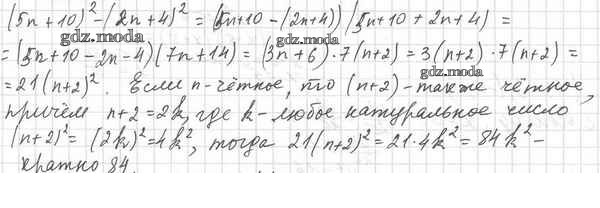 (5n + 10)² - (2n + 4)² = (5n + 10 - (2n + 4)) (5n + 10 + 2n + 4) =
gdz.moda
gdz.moda
= (5n + 10 - 2n - 4)(7n + 14) = (3n + 6) · 7(n + 2) = 3(n + 2) · 7(n + 2) =
gdz.moda
= 21(n + 2)². Если n - чётное, то (n + 2) - также чётное,
причём n + 2 = 2k, где k - любое натуральное число
gdz.moda
gdz.moda
(n + 2)² = (2k)² = 4k², тогда 21(n + 2)² = 21 · 4k² = 84k² -
кратно 84.